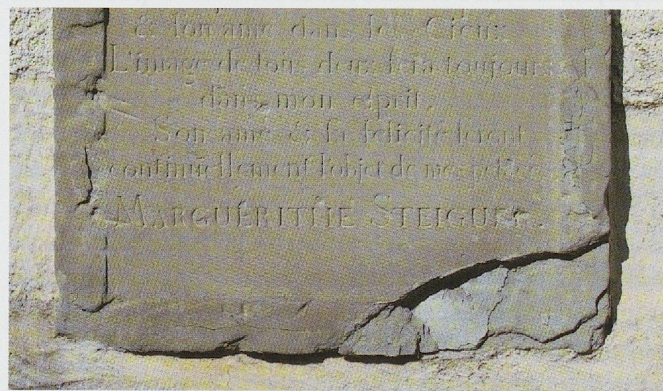 & son ame dans les Cieux
L'image de tous deux sera toujours
dans mon esprit,
Son ame & sa felicité seront
continuëllement l'objet de mes
MARGUERITHE STEIGUER.